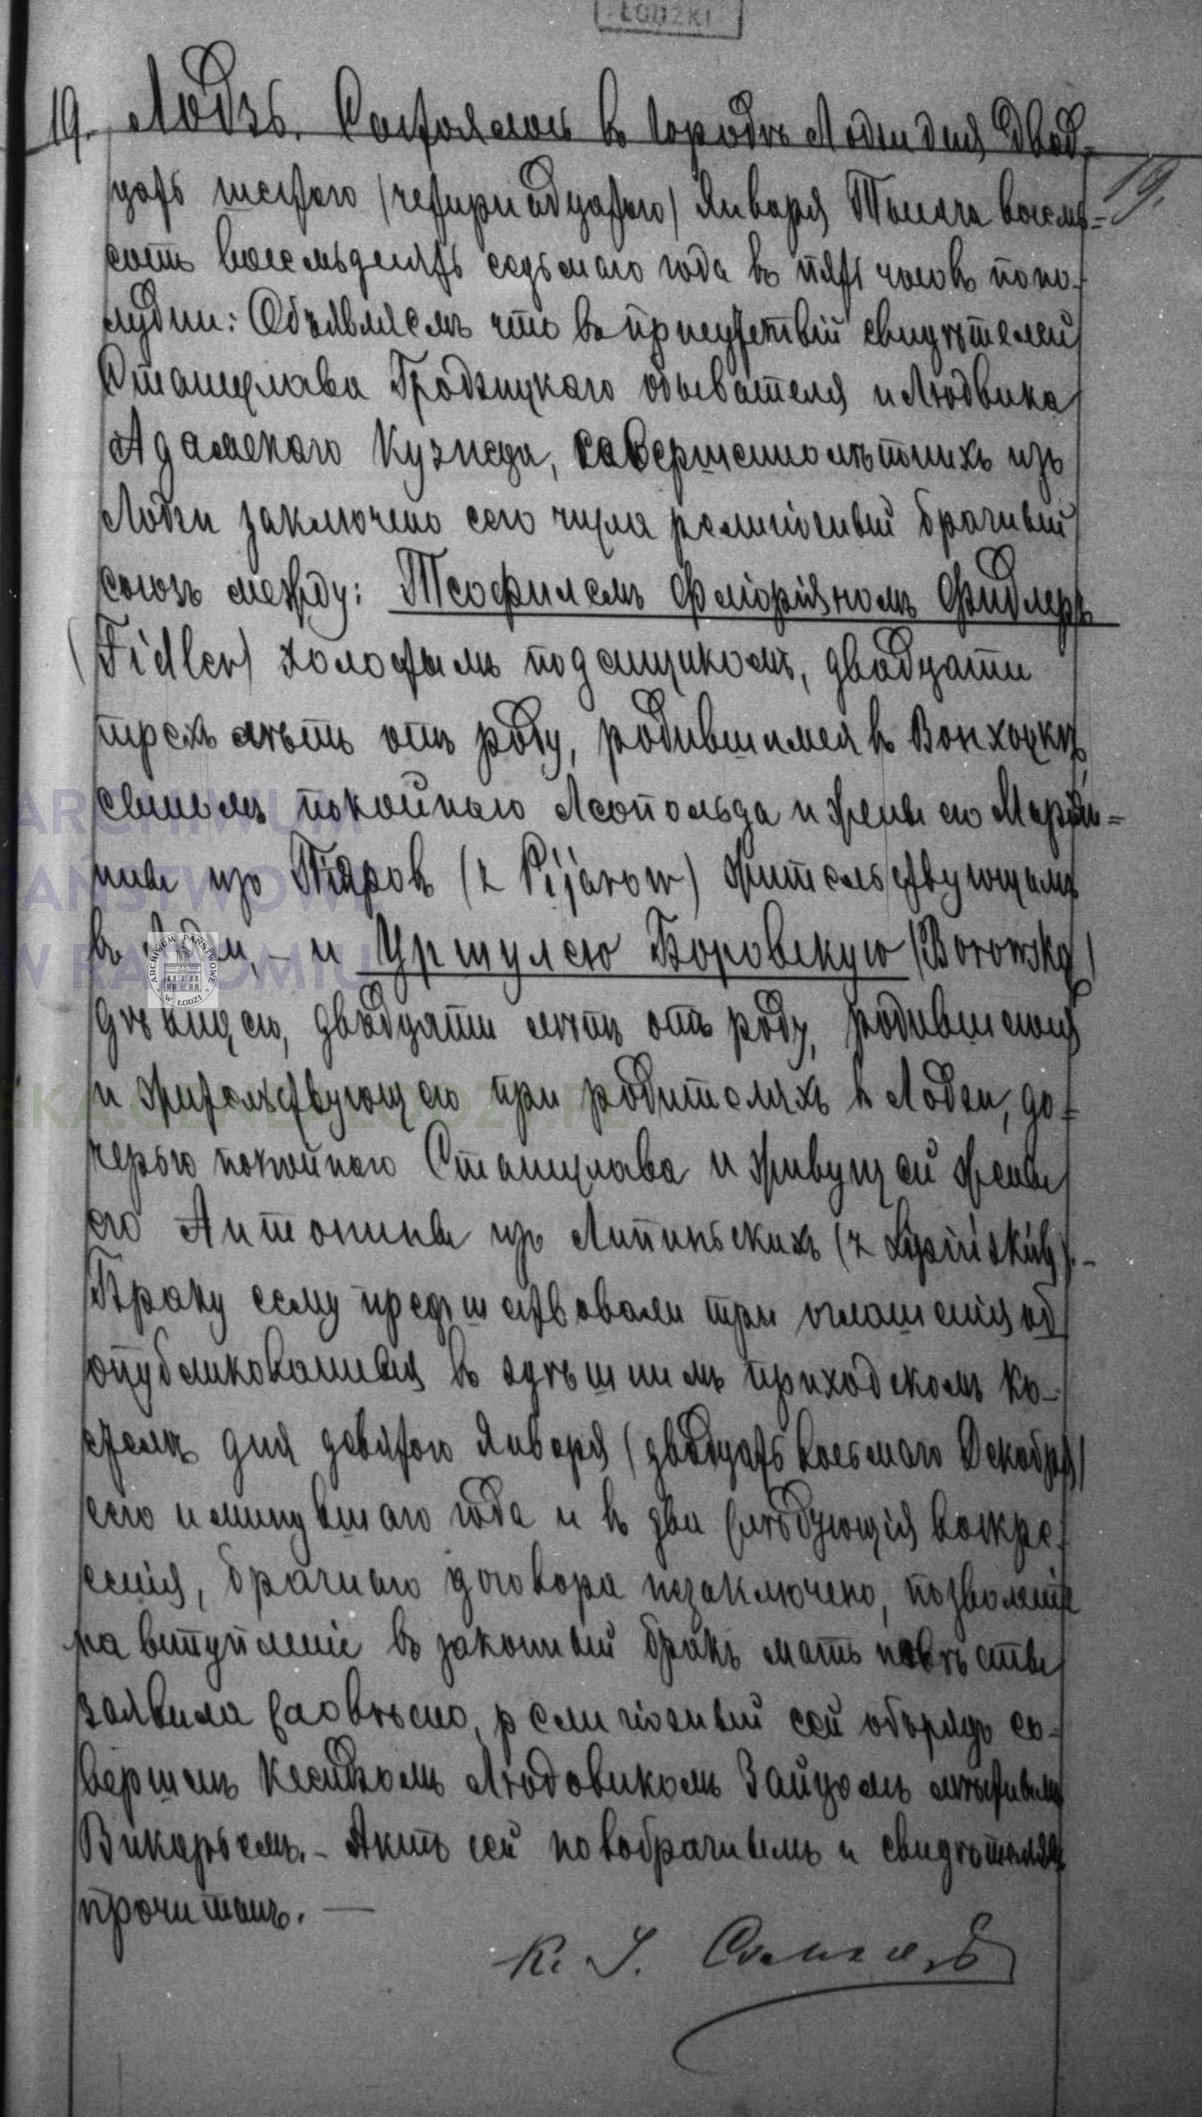 ŁÓDZKI
19. Лодзь. Состоялось въ городѣ Лодзи дня двад-
19.
цать шестаго (четырнадцатаго) Января Тысяча восемь-
сотъ восемьдесятъ седьмаго года въ пять часовъ попо-
лудни: Объявляемъ что въ присутствіи свидѣтелей
Станислава Гродзицкаго обывателя и Людвика
Адамскаго Кузнеца, совершеннолѣтнихъ изъ
Лодзи заключено сего числа религіозный брачный
союзъ между: Теофилемъ Флоріяномъ Фидлеръ
(Fidler) холостымъ поденщикомъ, двадцати
трехъ лѣтъ отъ роду, родившимся въ Вонхоцкѣ,
сыномъ покойнаго Леопольда и жены его Марьян-
ны изъ Піяровъ (z Pijarow) жительствующимъ
въ Лодзи, - и Уршулею Боровскую (Borowska)
дѣвицею, двадцати лѣтъ отъ роду, родившеюся
и жительствующею при родителяхъ въ Лодзи, до-
черью покойнаго Станислава и живущей жены
его Антонины изъ Липинскихъ (z Lipińskich). -
Браку сему предшествовали три оглашенія об
опубликованныя въ здѣшнимъ приходскомъ ко-
стелѣ дня девятаго Января (двадцать восьмаго Декабря)
сего и минувшаго года и въ два слѣдующія воскре-
сенія, брачнаго договора незаключено, позволеніе
на вступленіе въ законный бракъ мать невѣсты
заявила словесно, религіозный сей обрядъ со-
вершенъ Ксендзомъ Людовикомъ Зайцомъ мѣстнымъ
Викарьемъ. - Актъ сей новобрачнымъ и свидѣтелямъ
прочитанъ. —
К. I.
ARCHIWUM
PAŃSTWOWE
W RADOMIU
ARCHIWUM PAŃSTWOWE W ŁODZI